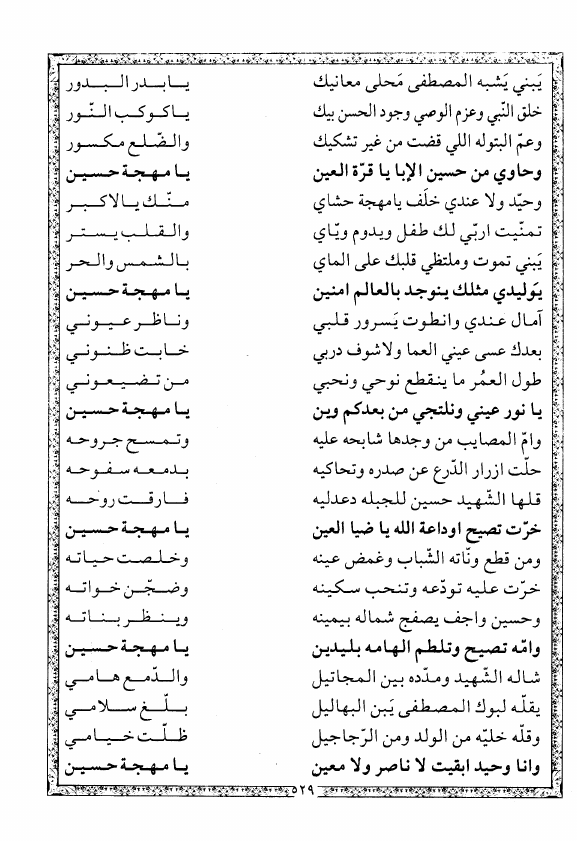 يَبني يَشبه المصطفى مَحلى معانيك يـابـدر الـبـدور
خلق النّبي وعزم الوصي وجود الحسن بيك ياكوكب النّور
وعمّ البتوله اللي قضت من غير تشكيك والضّلع مكسور
وحاوي من حسين الإبا يا قرّة العين يا مهجة حسين
وحيّد ولا عندي خلَف يامهجة حشاي منّك يالاكبر
تمنّيت اربّي لك طفل ويدوم ويّاي والقلب يستر
يَبني تموت وملتظي قلبك على الماي بالشمس والحر
يَوليدي مثلك ينوجد بالعالم امنين يا مهجة حسين
آمال عندي وانطوت يَسرور قلبي وناظر عيوني
بعدك عسى عيني العما ولاشوف دربي خابت ظنوني
طول العمُر ما ينقطع نوحي ونحبي من تضيعوني
يا نور عيني ونلتجي من بعدكم وين يا مهجة حسين
وامّ المصايب من وجدها شابحه عليه وتمسح جروحه
حلّت ازرار الدّرع عن صدره وتحاكيه بدمعه سفوحه
قلها الشّهيد حسين للجبله دعدليه فارقت روحه
خرّت تصيح اوداعة الله يا ضيا العين يا مهجة حسين
ومن قطع ونّاته الشّباب وغمض عينه وخلصت حياته
خرّت عليه تودّعه وتنحب سكينه وضجّن خواته
وحسين واجف يصفج شماله بيمينه وينظر بناته
وامّه تصيح وتلطم الهامه بليدين يا مهجة حسين
شاله الشّهيد ومدّده بين المجاتيل والدّمع هامي
يقلّه لبوك المصطفى يَبن البهاليل بلّغ سلامي
وقلّه خليّه من الولد ومن الرّجاجيل ظلّت خيامي
وانا وحيد ابقيت لا ناصر ولا معين يا مهجة حسين
٥٢٩